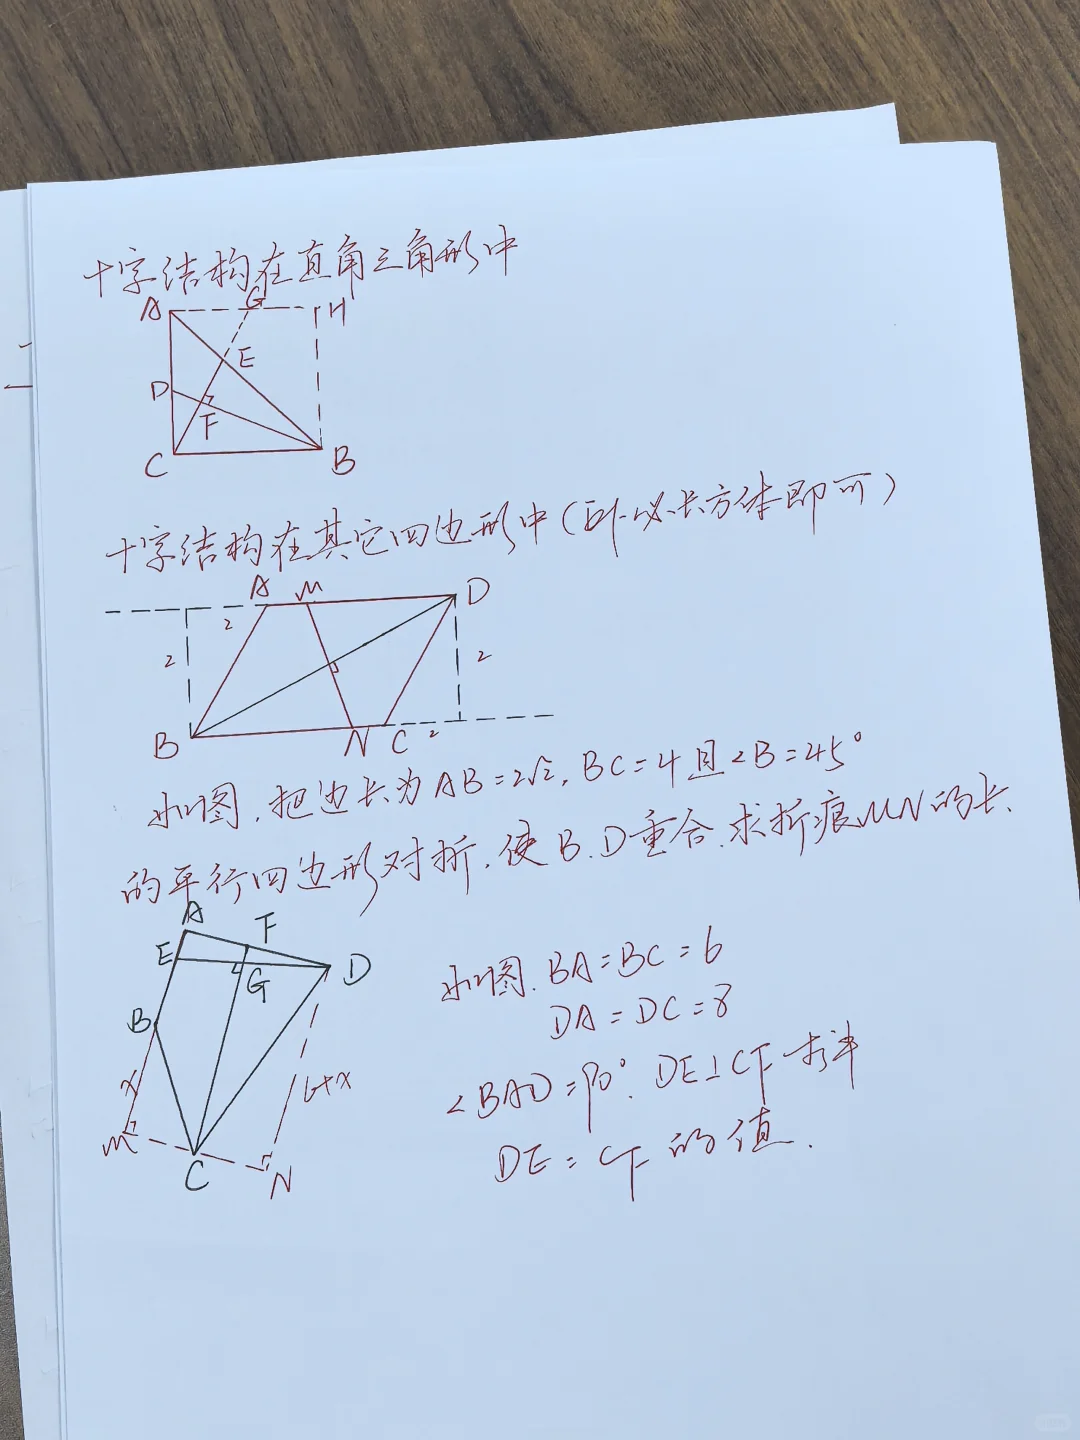 十字结构在直角三角形中
A G H
E
D
F
C B
十字结构在其它四边形中（补成长方体即可）
A M D
2
2 2
B N C 2
如图，把边长为AB=2√2，BC=4且∠B=45°
的平行四边形对折，使B、D重合，求折痕MN的长
A F
E D
G
B
x 6+x
M
C N
如图，BA=BC=6
DA=DC=8
∠BAD=90°，DE⊥CF 求
DE=CF的值．